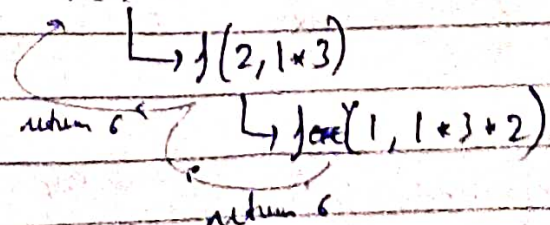 f(2, 1*3)
return 6
f(1, 1*3*2)
return 6